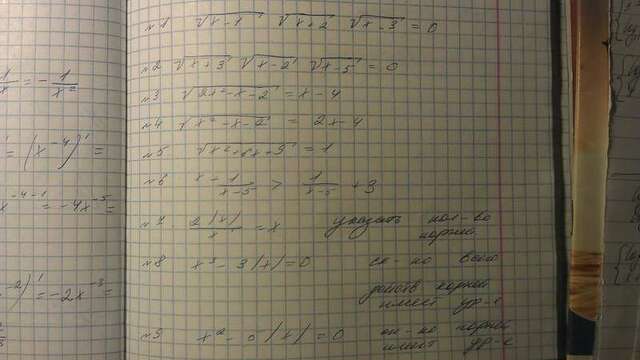 1/x = - 1/x²
' = (x⁻⁴)' =
x⁻⁴⁻¹ = -4x⁻⁵ =
⁻²)' = -2x⁻³ =
№1 √x-1 √x+2 √x-3 = 0
№2 √x+3 √x-2 √x-5 = 0
№3 √2x²-x-2 = x-4
№4 √x²-x-2 = 2x-4
№5 = 1
№6 x - 1/x-5 > 1/x-5 + 3
№7 2|x|/x = x указать кол-во
корней
№8 x² - 3|x| = 0 ск-ко всего
действ корней
имеет ур-е
№9 x² - 5|x| = 0 ск-ко корней
имеет ур-е